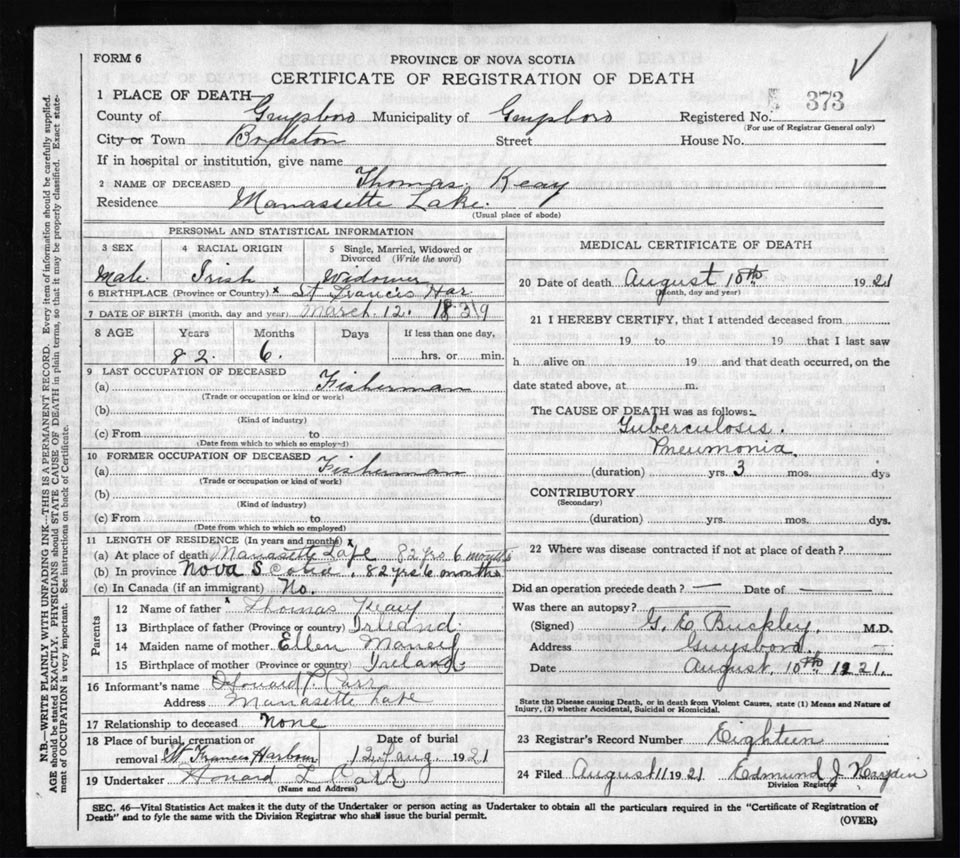 FORM 6
PROVINCE OF NOVA SCOTIA
CERTIFICATE OF REGISTRATION OF DEATH
1 PLACE OF DEATH—
County of Guysboro Municipality of Guysboro Registered No. 373
(For use of Registrar General only)
City or Town Boylston Street House No.
If in hospital or institution, give name
2 NAME OF DECEASED Thomas Keay
Residence Manassette Lake.
(Usual place of abode)
PERSONAL AND STATISTICAL INFORMATION
3 SEX 4 RACIAL ORIGIN 5 Single, Married, Widowed or Divorced (Write the word)
Male Irish Widower
6 BIRTHPLACE (Province or Country) x St Francis Har
7 DATE OF BIRTH (month, day and year) March 12. 1839
8 AGE Years Months Days If less than one day,
82. 6. hrs. or min.
9 LAST OCCUPATION OF DECEASED
(a) Fisherman
(Trade or occupation or kind or work)
(b)
(Kind of industry)
(c) From to
(Date from which to which so employed)
10 FORMER OCCUPATION OF DECEASED
(a) Fisherman
(Trade or occupation or kind of work)
(b)
(Kind of industry)
(c) From to
(Date from which to which so employed)
11 LENGTH OF RESIDENCE (In years and months) x
(a) At place of death Manasette Lake 82 yrs 6 months
(b) In province Nova Scotia, 82 yrs 6 months
(c) In Canada (if an immigrant) No.
Parents
12 Name of father x Thomas Keay
13 Birthplace of father (Province or country) Irleand.
14 Maiden name of mother Ellen
15 Birthplace of mother (Province or country) Ireland.
16 Informant's name Carr
Address Manasette Lake
17 Relationship to deceased None
18 Place of burial, cremation or removal St Francis Harbour
Date of burial 12 Aug. 1921
19 Undertaker Howard L Carr
(Name and Address)
MEDICAL CERTIFICATE OF DEATH
20 Date of death August 10th. 1921
(Month, day and year)
21 I HEREBY CERTIFY, that I attended deceased from
19 to 19 that I last saw
h alive on 19 and that death occurred, on the
date stated above, at m.
The CAUSE OF DEATH was as follows:
Tuberculosis.
Pneumonia.
(duration) yrs. 3 mos. dys
CONTRIBUTORY
(Secondary)
(duration) yrs. mos. dys.
22 Where was disease contracted if not at place of death?
Did an operation precede death? — Date of —
Was there an autopsy?
(Signed) G. E. Buckley, M.D.
Address Guysboro. —
Date August, 10th 1921.
State the Disease causing Death, or in death from Violent Causes, state (1) Means and Nature of
Injury, (2) whether Accidental, Suicidal or Homicidal.
23 Registrar's Record Number Eighteen
24 Filed August 11 1921 Edmund J Hayden
Division Registrar
SEC. 46—Vital Statistics Act makes it the duty of the Undertaker or person acting as Undertaker to obtain all the particulars required in the "Certificate of Registration of
Death" and to fyle the same with the Division Registrar who shall issue the burial permit.
(OVER)
N.B.—WRITE PLAINLY WITH UNFADING INK—THIS IS A PERMANENT RECORD. Every item of information should be carefully supplied.
AGE should be stated EXACTLY. PHYSICIANS should STATE CAUSE OF DEATH in plain terms, so that it may be properly classified. Exact state-
ment of OCCUPATION is very important. See instructions on back of Certificate.